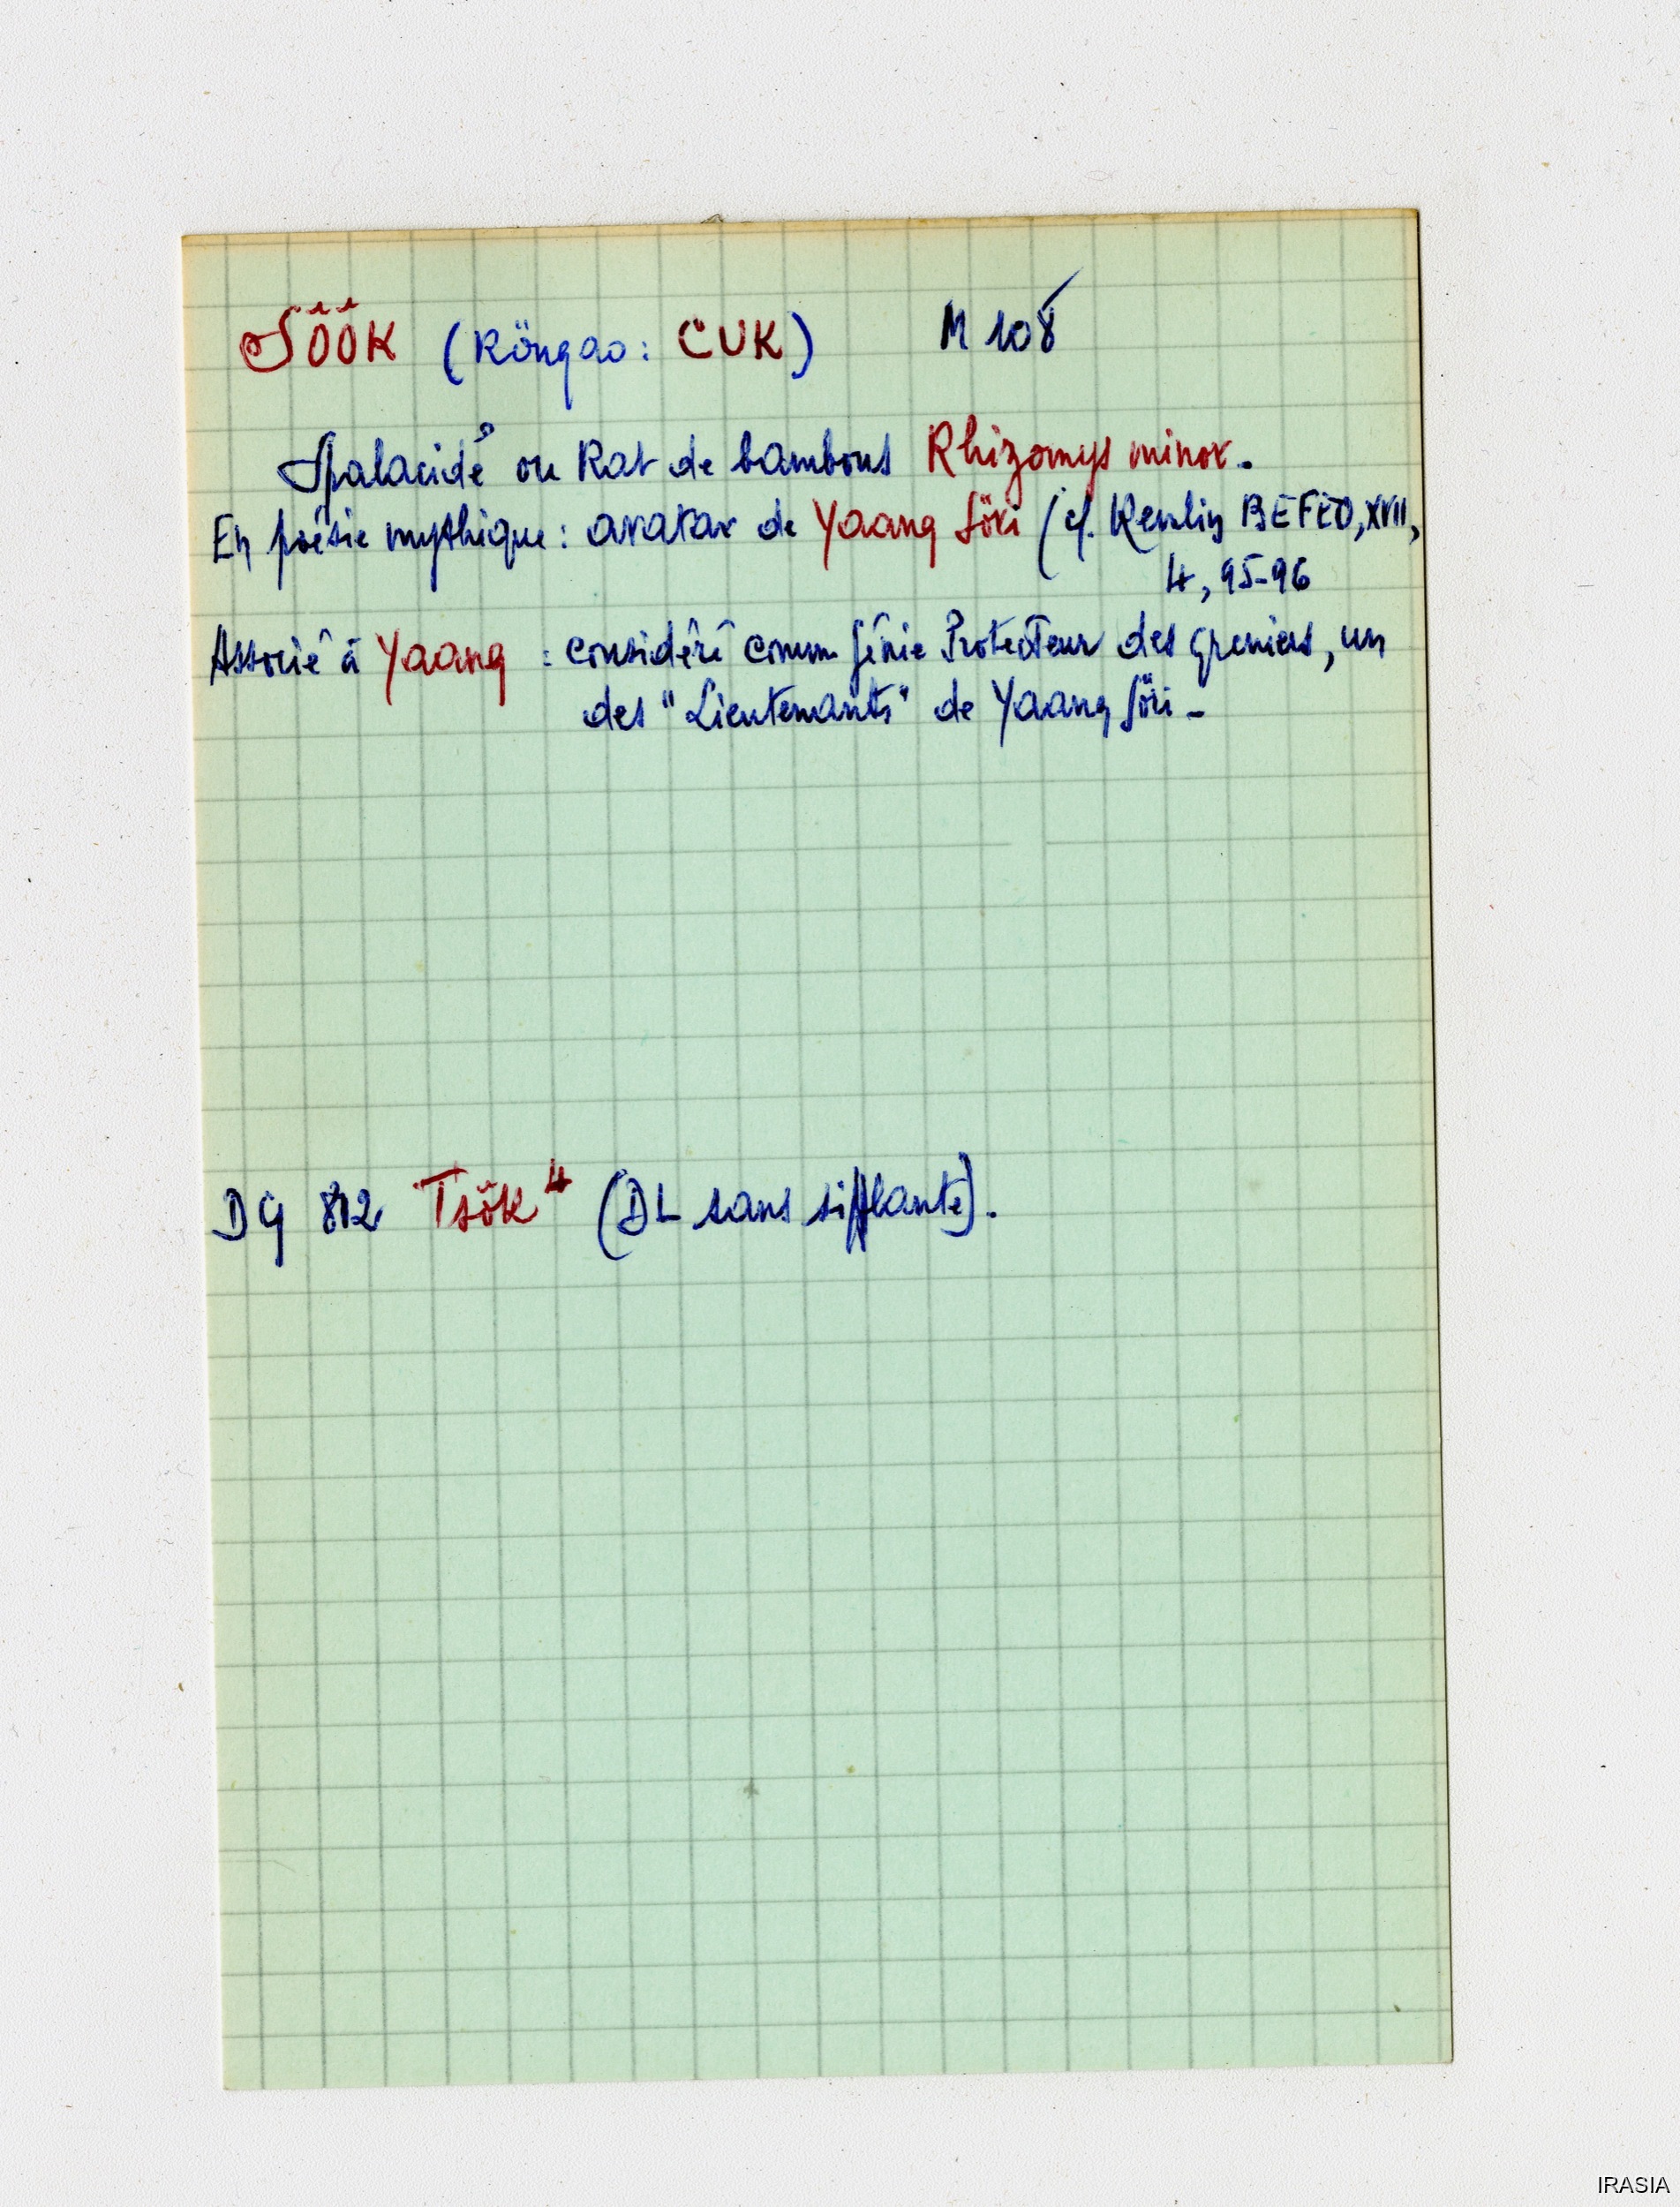 SÖÖK (Röngao: CUK) M 108
Spalacidé ou Rat de bambous Rhizomys minor.
En poésie mythique : avatar de Yaang Söri (cf. Kemlin BEFEO, XVII,
4, 95-96
Associé à Yaang : considéré comm Génie Protecteur des greniers, un
des "Lieutenants" de Yaang Söri -
DG 812 Tsök 4 (DL sans sifflante).
IRASIA